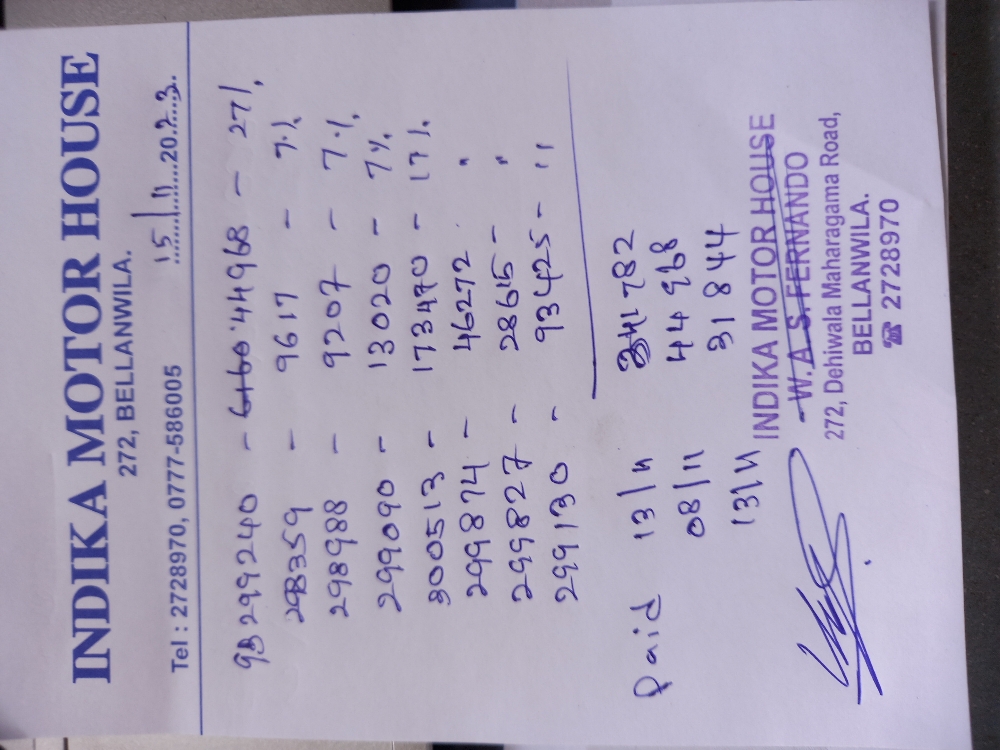 INDIKA MOTOR HOUSE
272, BELLANWILA.
Tel : 2728970, 0777-586005 15/11 2023.
299240 - 44968 - 27%
298359 - 9617 - 7%
298988 - 9207 - 7%
299090 - 13020 - 7%
300513 - 173470 - 17%
299874 - 46272 "
299827 - 28615 - "
299130 - 93425 - "
Paid 13/11 341782
08/11 44968
13/11 31844
INDIKA MOTOR HOUSE
W. A. S. FERNANDO
272, Dehiwala Maharagama Road,
BELLANWILA.
☎ 2728970